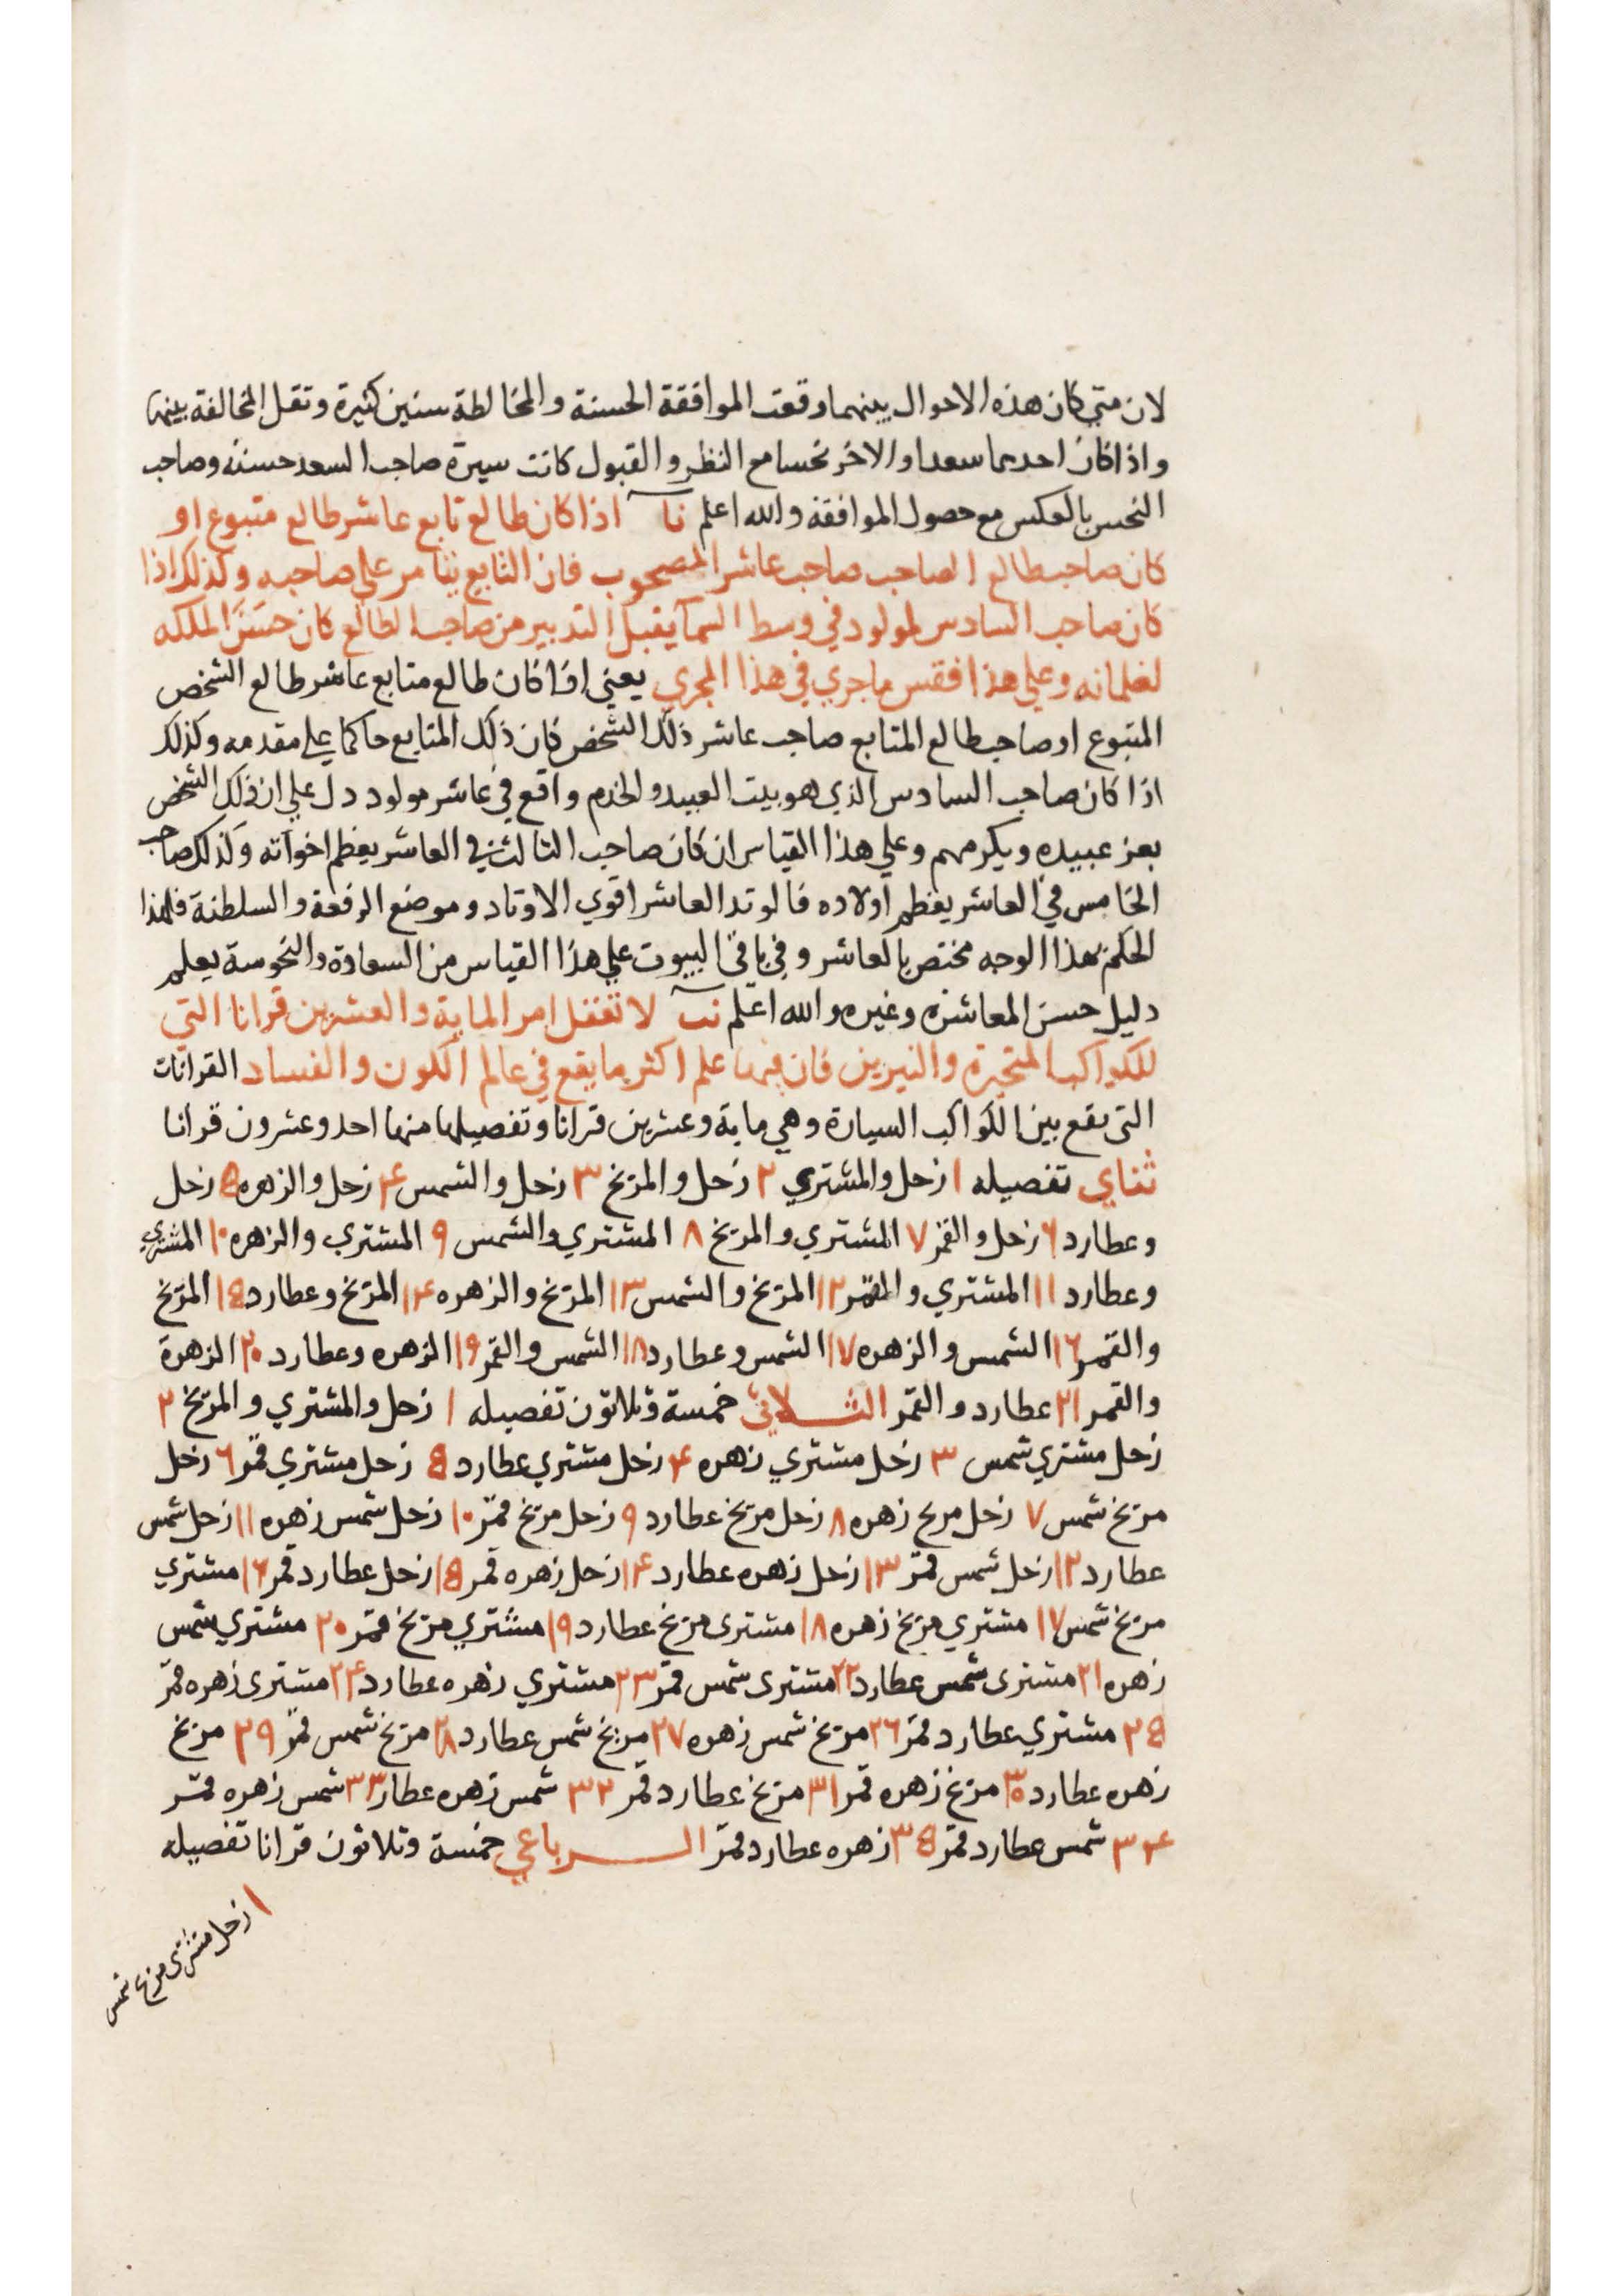 لان متي كان هذه الاحوال بينهما وقعت الموافقة الحسنة والمخالطة سنين كثيرة وتقل المخالفة بينهما
واذا كان احدهما سعدا والاخر نحسا مع النظر والقبول كانت سيرة صاحب السعد حسنة وصاحب
النحس بالعكس مع حصول الموافقة والله اعلم نا اذا كان طالع تابع عاشر طالع متبوع او
كان صاحب طالع الصاحب صاحب عاشر المصحوب فان التابع يتامر علي صاحبه وكذلك اذا
كان صاحب السادس لمولود في وسط السما يقبل التدبير من صاحب الطالع كان حسن الملكه
لغلمانه وعلي هذا فقس ما جري في هذا المجري يعني اذا كان طالع متابع عاشر طالع الشخص
المتبوع او صاحب طالع المتابع صاحب عاشر ذلك الشخص كان ذلك المتابع حاكما علي مقدمه وكذلك
اذا كان صاحب السادس الذي هو بيت العبيد والخدم واقع في عاشر مولود دل علي ان ذلك الشخص
بعز عبيده ويكرمهم وعلي هذا القياس ان كان صاحب الثالث في العاشر يعظم اخواته وكذلك صاحب
الخامس في العاشر يعظم اولاده فالوتد العاشر اقوي الاوتاد وموضع الرفعة والسلطنة فلهذا
الحكم بهذا الوجه مختص بالعاشر وفي باقي البيوت علي هذا القياس من السعادة والنحوسة يعلم
دليل حسن المعاشره وغيره والله اعلم نب لا تغفل امر الماية والعشرين قرانا التي
للكواكب المتحيرة والنيرين فان فيها علم اكثر ما يقع في عالم الكون والفساد القرانات
التى يقع بين الكواكب السيارة وهي ماية وعشرين قرانا وتفصيلها منها احد وعشرون قرانا
ثناي تفصيله ١ زحل والمشتري ٢ زحل والمريخ ٣ زحل والشمس ۴ زحل والزهره ٥ زحل
وعطارد ٦ زحل والقمر ٧ المشتري والمريخ ٨ المشتري والشمس ٩ المشتري والزهره ١٠ المشتري
وعطارد ١١ المشتري والقمر ١٢ المريخ والشمس ١٣ المريخ والزهره ١۴ المريخ وعطارد ١٥ المريخ
والقمر ١٦ الشمس والزهره ١٧ الشمس وعطارد ١٨ الشمس والقمر ١٩ الزهره وعطارد ٢٠ الزهرة
والقمر ٢١ عطارد والقمر الثلاثي خمسة وثلاثون تفصيله ١ زحل والمشتري والمريخ ٢
زحل مشتري شمس ٣ زحل مشتري زهره ۴ زحل مشتري عطارد ٥ زحل مشتري قمر ٦ زحل
مريخ شمس ٧ زحل مريخ زهره ٨ زحل مريخ عطارد ٩ زحل مريخ قمر ١٠ زحل شمس زهره ١١ زحل شمس
عطارد ١٢ زحل شمس قمر ١٣ زحل زهره عطارد ١۴ زحل زهره قمر ١٥ زحل عطارد قمر ١٦ مشتري
مريخ شمس ١٧ مشتري مريخ زهره ١٨ مشترى مريخ عطارد ١٩ مشتري مريخ قمر ٢٠ مشتري شمس
زهره ٢١ مشترى شمس عطارد ٢٢ مشترى شمس قمر ٢٣ مشتري زهره عطارد ٢۴ مشترى زهره قمر
٢٥ مشتري عطارد قمر ٢٦ مريخ شمس زهره ٢٧ مريخ شمس عطارد ٢٨ مريخ شمس قمر ٢٩ مريخ
زهره عطارد ٣٠ مريخ زهره قمر ٣١ مريخ عطارد قمر ٣٢ شمس زهره عطار ٣٣ شمس زهره قمر
٣۴ شمس عطارد قمر ٣٥ زهره عطارد قمر الرباعي خمسة وثلاثون قرانا تفصيله
١ زحل مشترى مريخ شمس